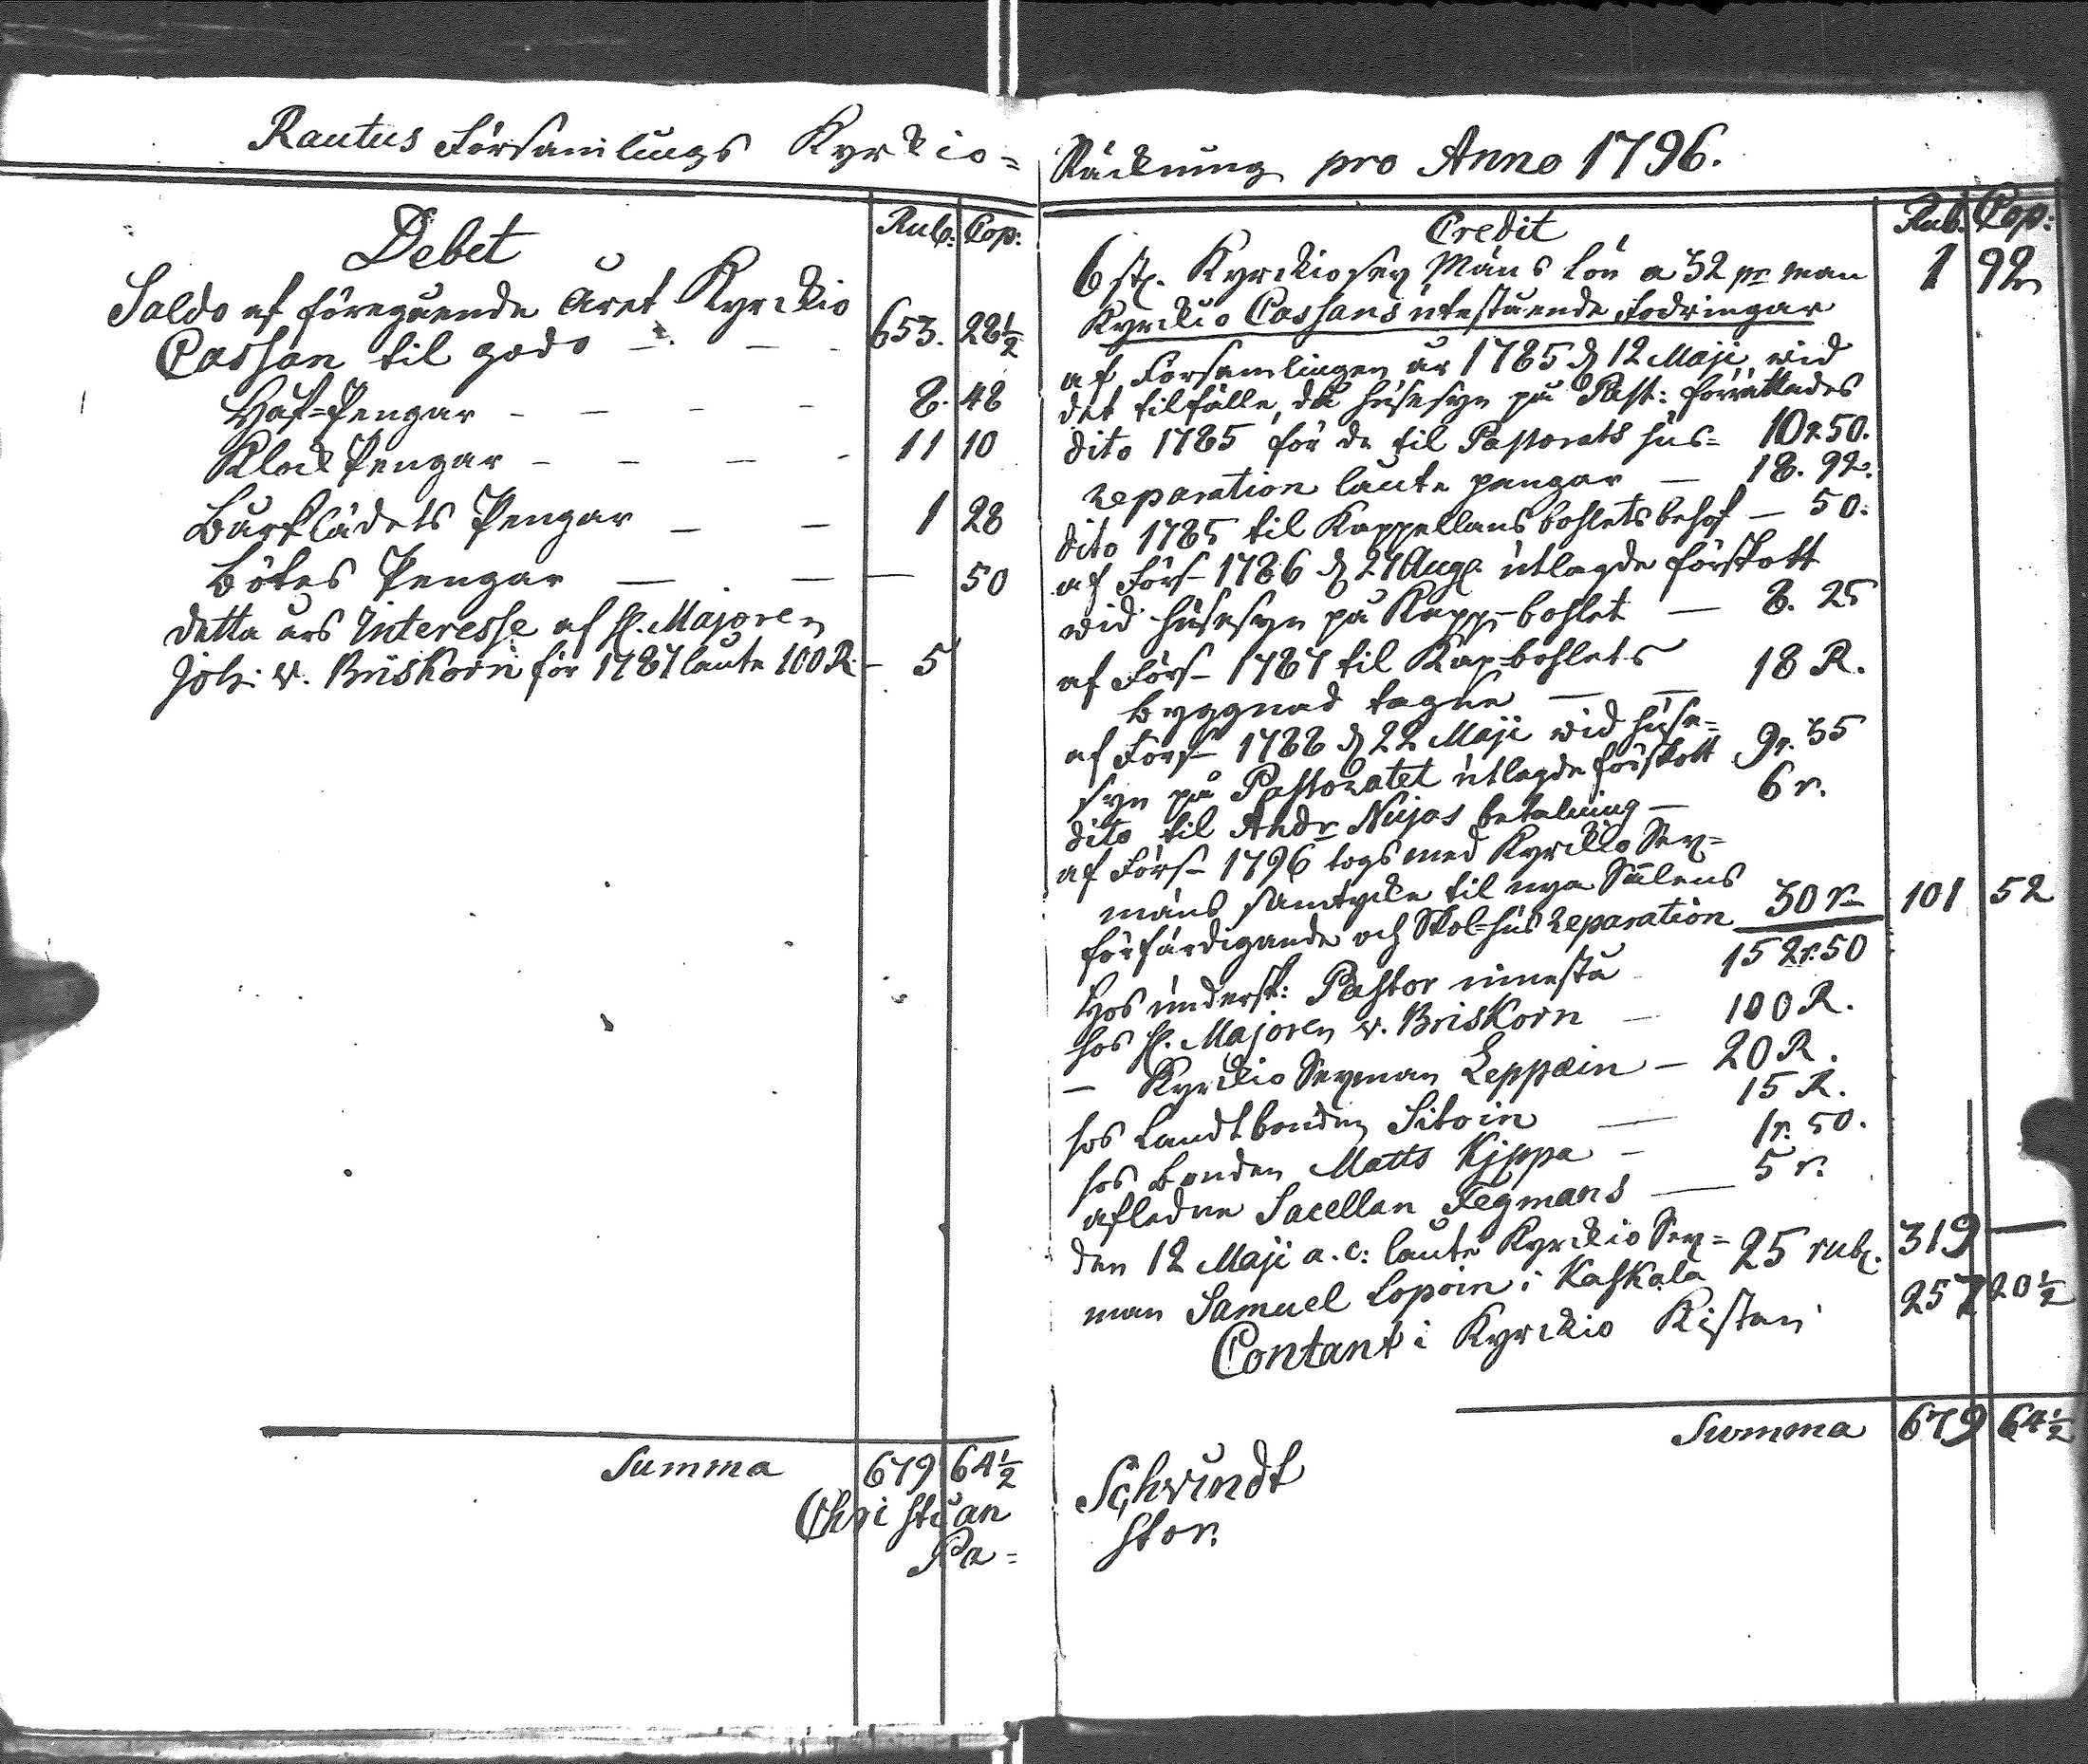 Rautus Församlings Kyrckio=
Debet
Rub: Cop:
Saldo af föregående Året Kyrckio
Cassan til godo — — 653. 28½
Håf=Pengar — — — — 8. 48
Klock Pengar — — — — 11 10
Bårklädets Pengar — — 1 28
Bötes Pengar — — — 50
detta års Interesse af H. Majoren
Joh: v. Briskorn för 1787 lånte 100 R: — 5
Summa 679 64½
Christian
Pa=
Räckning pro Anno 1796.
Credit
Rub. Cop:
6 st. Kyrckiosex Mäns lön a 32 pr man 1 92
Kyrckio Cassans utestående Fodringar
af Församlingen år 1785 d 12 Maji, wid
det tilfälle, då husesyn på Past: förrättades 10 r. 50.
dito 1785 för de til Pastorats hus=
reparation lånte pengar — 18. 92.
dito 1785 til Kappellans bohlets behof — 50.
af Förs– 1786 d 27 Aug. utlagde förskott
wid husesyn på Kapp–bohlet — 8. 25
af Förs– 1787 til Kap=bohlets
byggnad tagne — — 18 R.
af Förs– 1788 d 22 Maji wid huse=
syn på Pastoratet utlagde förskott 9 r. 35
dito til Andr Nujas betalning — 6 r.
af Förs– 1796 togs med Kyrckio Sex=
mäns samtycke til nya Sälens
förfärdigande och Skol=hus reparation 30 r– 101 52
Hos undersk: Pastor innestå 152 r. 50
hos H. Majoren v. Briskorn — 100 R.
— Kyrckio Sexman Leppæin — 20 R.
hos Landtbonden Sitoin — 15 R.
hos Bonden Matts Kjppa — 1 r. 50.
afledne Sacellan Tegmans — 5 r.
den 12 Maji a. c: lånte Kyrckio Sex=
man Samuel Lopoin i Kaskala 25 rub. 319 —
Contant i Kyrckio Kistan 257 20½
Summa 679 64½
Schvindt
stor.